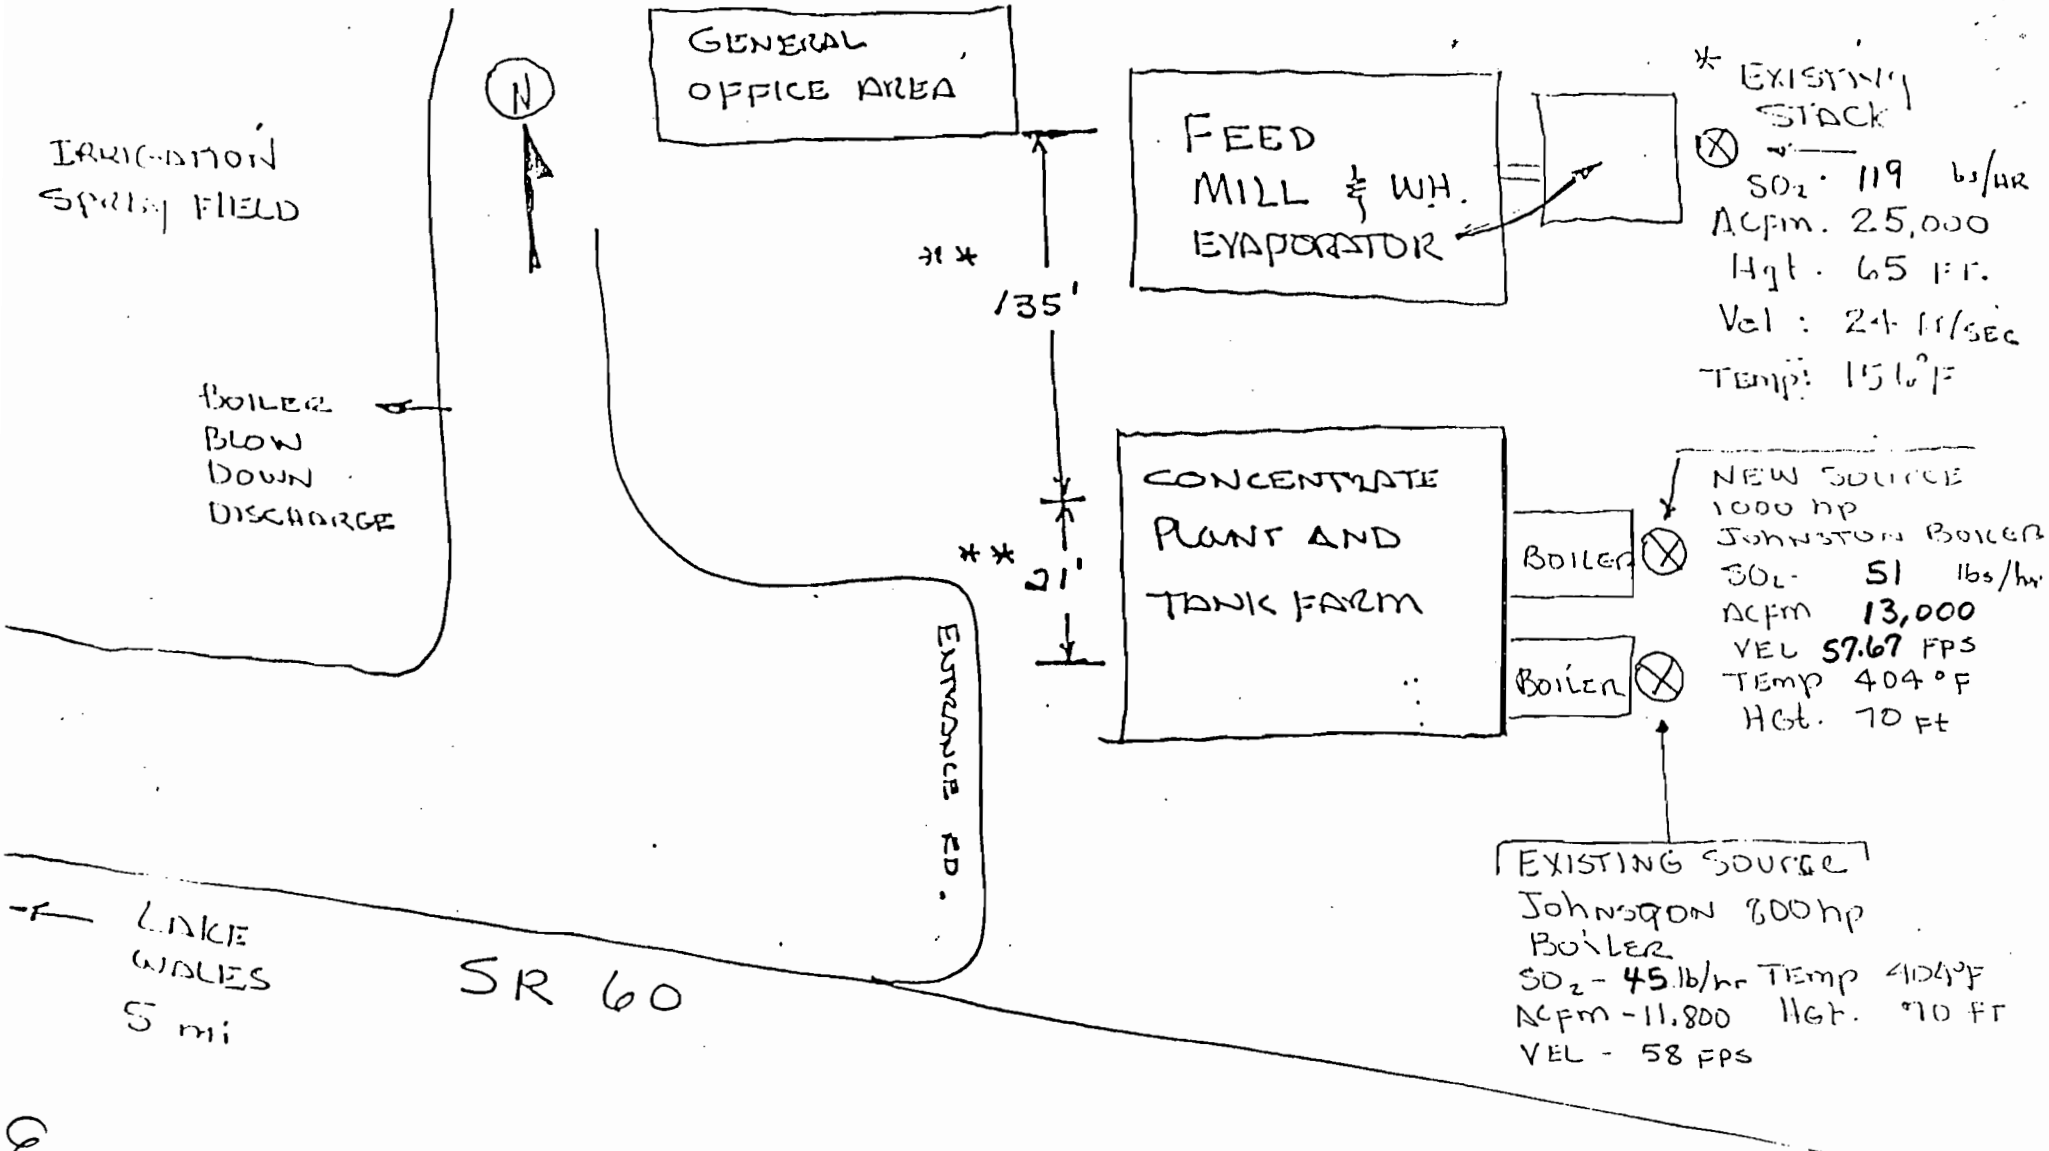 GENERAL
OFFICE AREA
N
IRRIGATION
SPRAY FIELD
FEED
MILL & WH.
EVAPORATOR
* EXISTING
STACK
SO2 · 119 lbs/HR
ACFM. 25,000
Hgt. 65 FT.
Vel : 24 FT/SEC
TEMP:
**
135'
BOILER
BLOW
DOWN
DISCHARGE
CONCENTRATE
PLANT AND
TANK FARM
**
21'
BOILER
BOILER
NEW SOURCE
1000 hp
JOHNSTON BOILER
SO2- 51 lbs/hr
ACFM 13,000
VEL 57.67 FPS
TEMP 404°F
HGt. 70 Ft
ENTRANCE RD.
EXISTING SOURCE
JOHNSTON 800 hp
BOILER
SO2 - 45 lb/hr TEMP 404°F
ACFM - 11,800 HGt. 70 FT
VEL - 58 FPS
LAKE
WALES
5 mi
SR 60
6